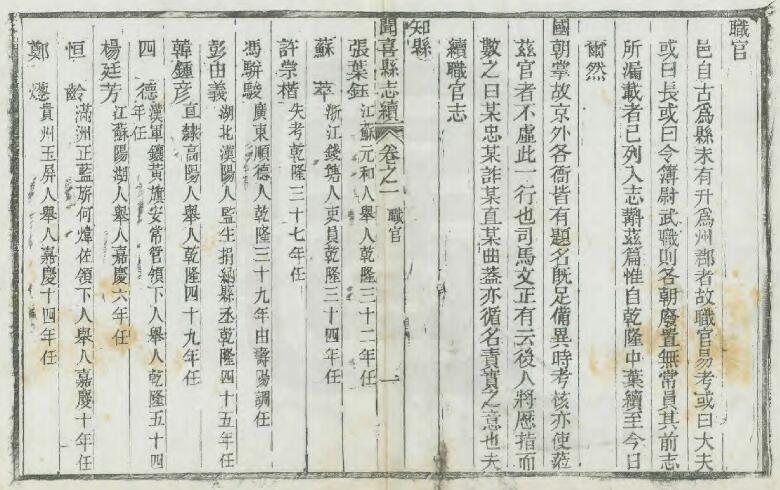 職官
邑自古爲縣未有升爲州郡者故職官易考或曰大夫
或曰長或曰令簿尉武職則各朝廢置無常員其前志
所漏載者已列入志辨茲篇惟自乾隆中葉續至今日
爾然
國朝掌故京外各衙皆有題名旣足備異時考核亦使蒞
茲官者不虛此一行也司馬文正有云後人將歷指而
數之曰某忠某詐某直某曲葢亦循名責實之意也夫
續職官志
知縣
聞喜縣志續 卷之一 職官 一
張葉鈺 江蘇元和人舉人乾隆三十二年任
蘇萃 浙江錢塘人吏員乾隆三十四年任
許崇楷 失考乾隆三十七年任
馮駢駿 廣東順德人乾隆三十九年由壽陽調任
彭由義 湖北漢陽人監生捐納縣丞乾隆四十五年任
韓鍾彥 直隸高陽人舉人乾隆四十九年任
四德 漢軍鑲黃旗安常管領下人舉人乾隆五十四年任
楊廷芳 江蘇陽湖人舉人嘉慶六年任
恒齡 滿洲正藍旂何煒佐領下人舉人嘉慶十年任
鄭 貴州玉屏人舉人嘉慶十四年任